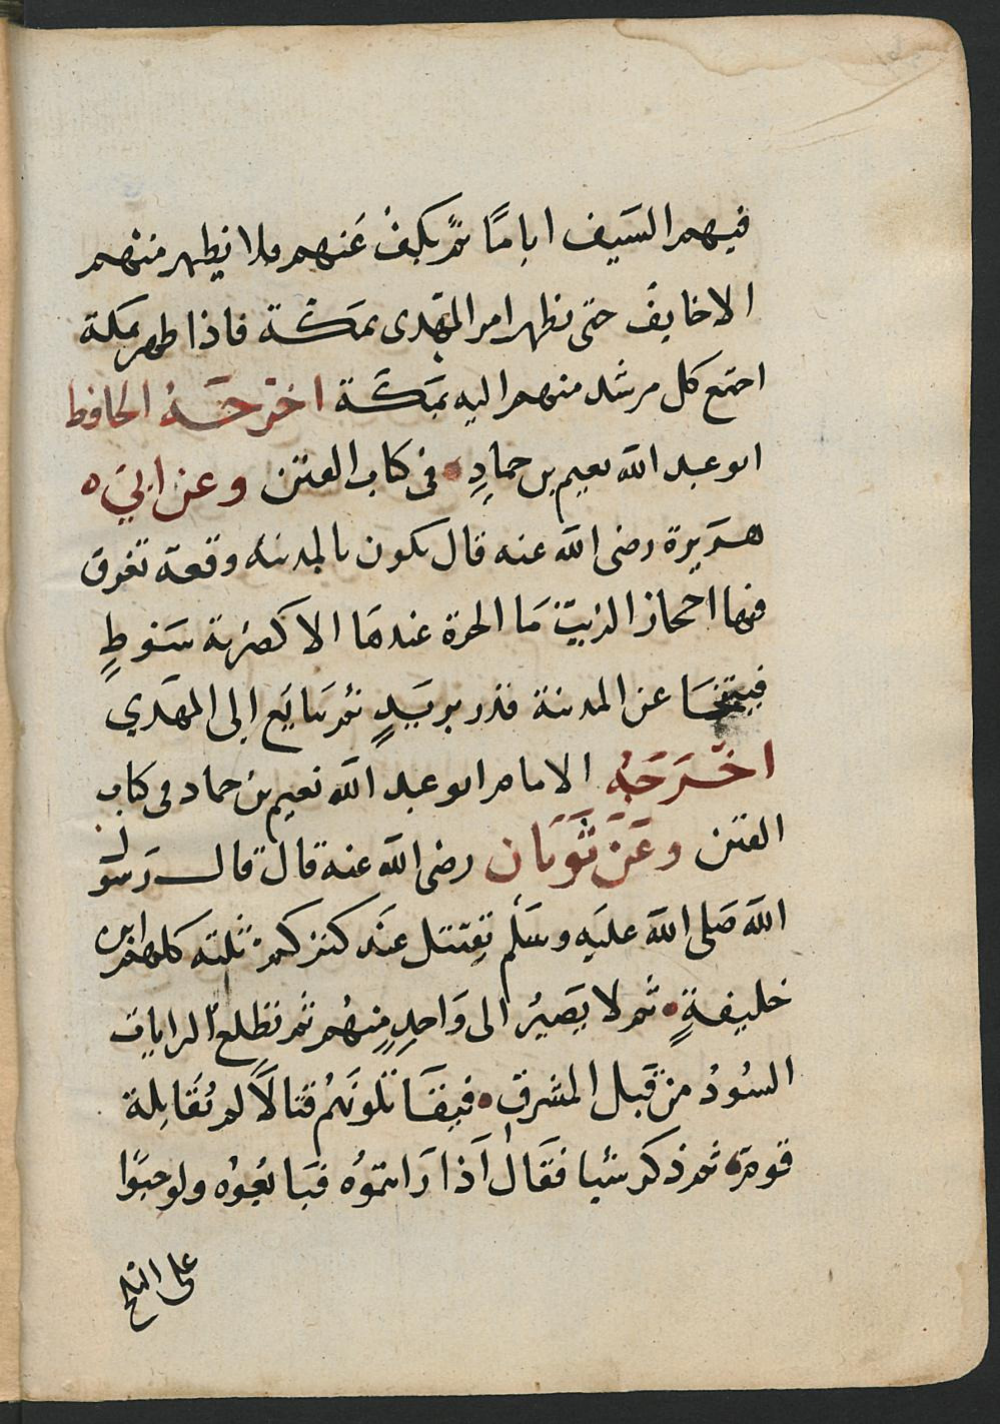 فيهم السَيف اياما ثم يكف عَنهم فلا يظهر منهم
الا خايف حتى يظهر امر المهدى بمكَّة فاذا ظهر بمكة
اجتمع كل من شذ منهم اليه بمَكَّة اخرجَهُ الحافظ
ابو عبد الله نعيم بن حمادٍ فى كتاب الفتن وعن ابي ه
هريرة رضى الله عنه قال يكون بالمدينه وقعة تغرق
فيها احجار الزيت مَا الحرة عندهَا الا كضربة سَوطٍ
عن المدينة قدر بريدٍ ثم يبَايَع إلى المهَدي
اخرَجَهُ الامام ابو عبد الله نعيم بن حماد فى كتاب
الفتن وعَن ثَوبَان رضى الله عنه قال قال رَسَول
الله صَلى الله علَيه وسَلم يقتتل عنَد كنزكم ثلثه كلهم ابن
خليفةٍ ثم لا يَصَيرُ الى وَاحِدٍ مِنهُم ثم تطلع الرايات
السُودُ من قبَل المشرق فيقَاتلونَهُم قتالاً لم يُقَاتِلهُ
قوم ثم ذكر شيا فقَال اذَا رَايتموُه فبَايعُوُه ولو حبوًا
على الثلج